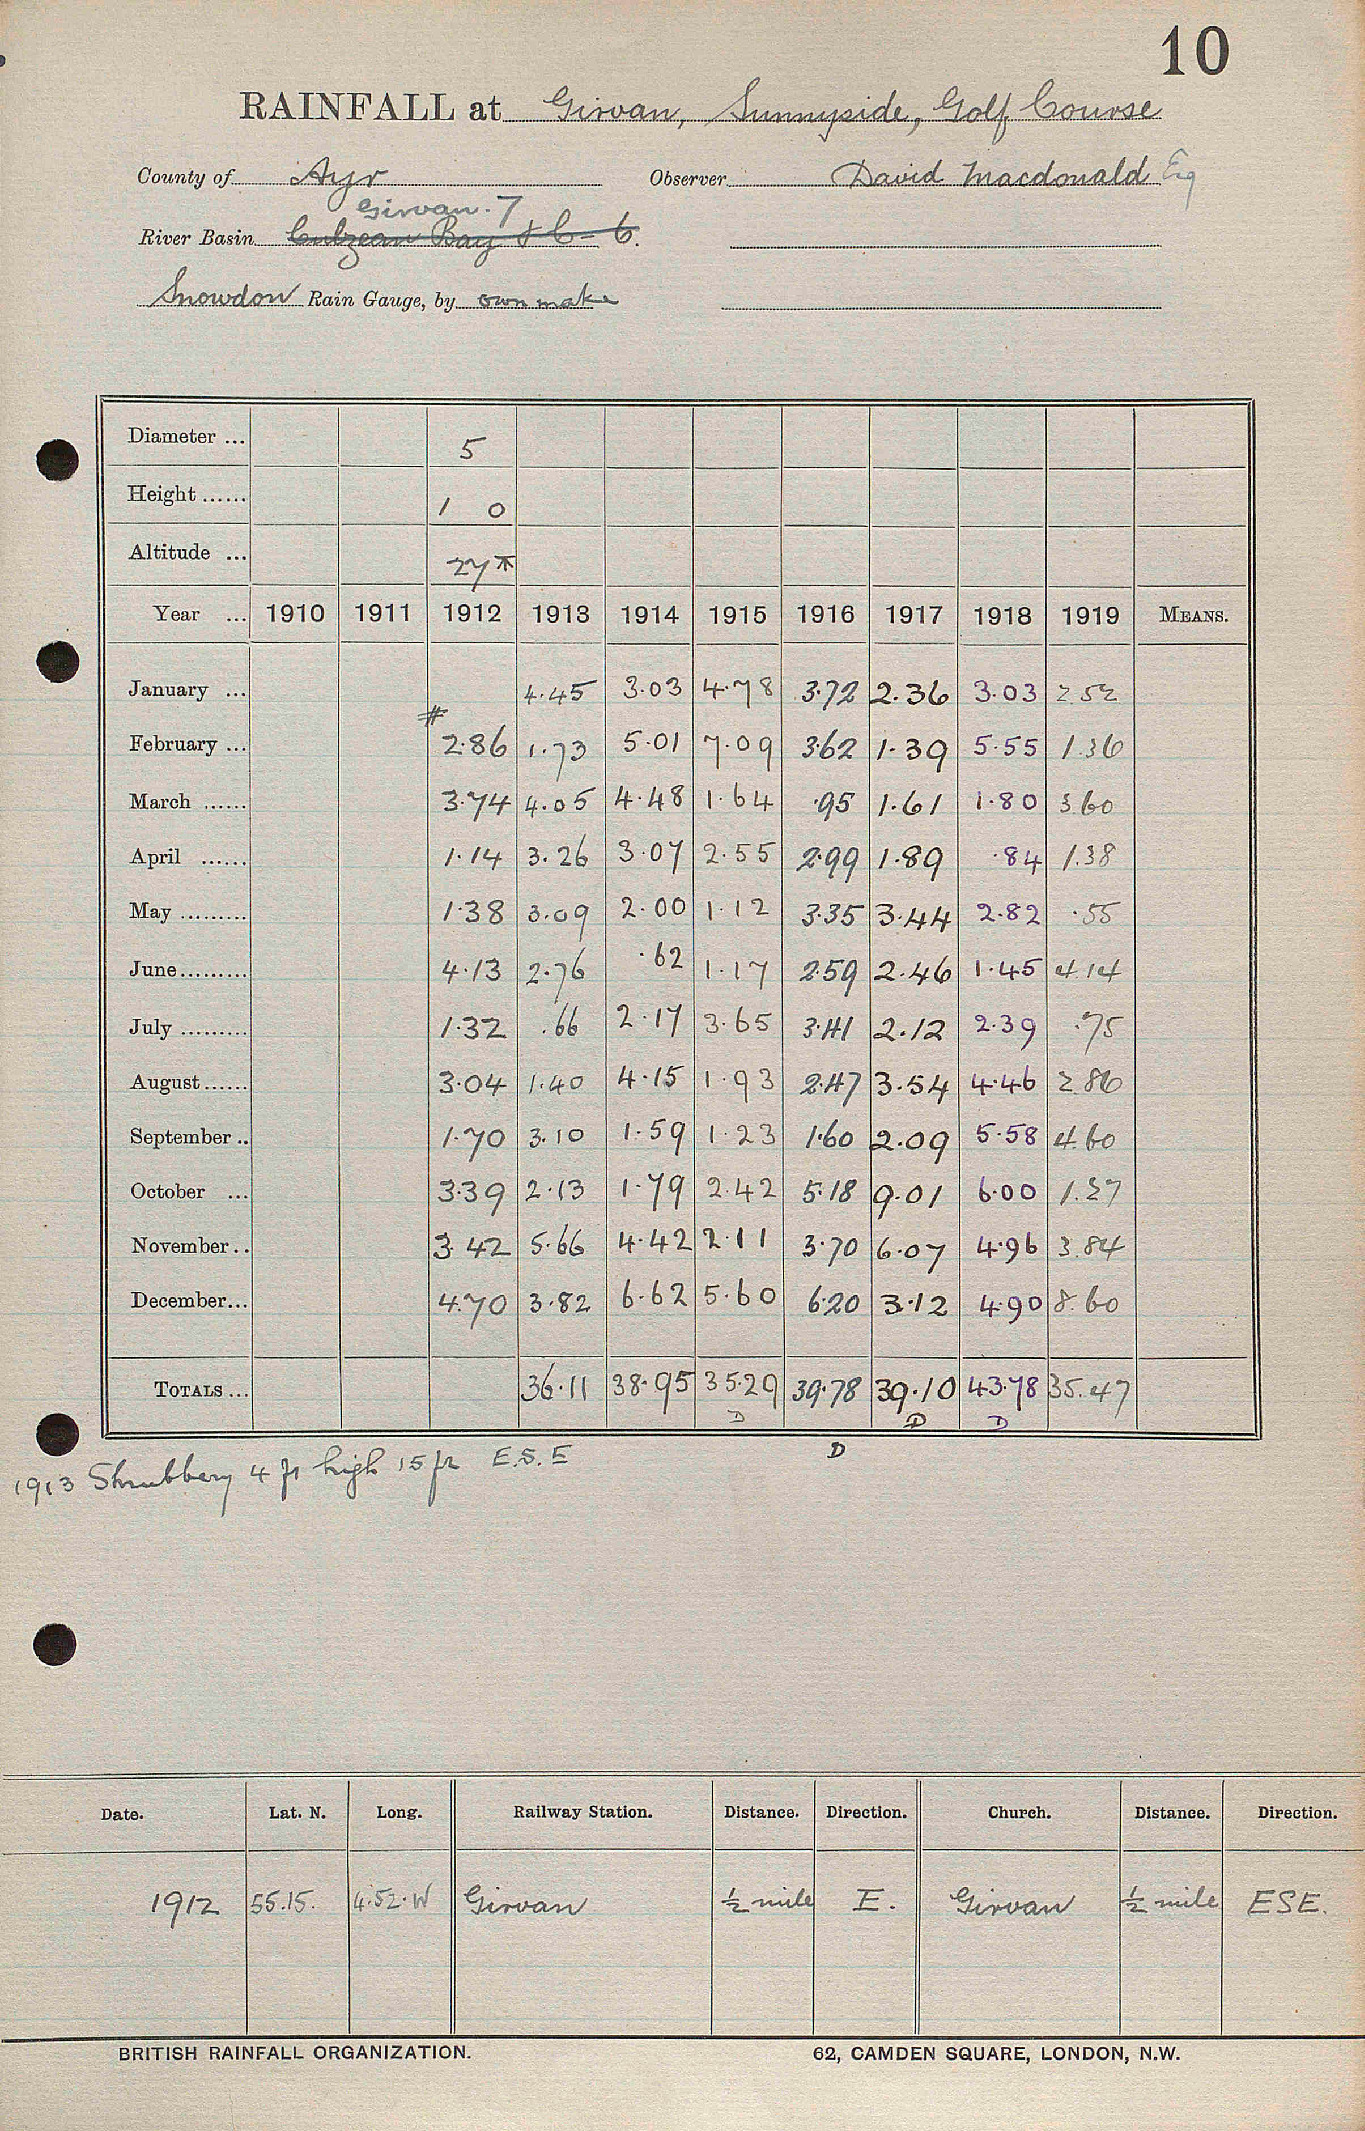 10
RAINFALL at Girvan, Sunnyside, Golf Course
County of Ayr Observer David Macdonald Esq
Girvan. 7
River Basin Culzean Bay & C - 6.
Snowdon Rain Gauge, by own make
Diameter ... 5
Height ...... 1 0
Altitude ... 27 ⊼
Year ... 1910 1911 1912 1913 1914 1915 1916 1917 1918 1919 MEANS.
January ... 4.45 3.03 4.78 3.72 2.36 3.03 2.52
February ... # 2.86 1.73 5.01 7.09 3.62 1.39 5.55 1.36
March ...... 3.74 4.05 4.48 1.64 .95 1.61 1.80 3.60
April ...... 1.14 3.26 3.07 2.55 2.99 1.89 .84 1.38
May ......... 1.38 3.09 2.00 1.12 3.35 3.44 2.82 .55
June......... 4.13 2.76 .62 1.17 2.59 2.46 1.45 4.14
July ......... 1.32 .66 2.17 3.65 3.41 2.12 2.39 .75
August...... 3.04 1.40 4.15 1.93 2.47 3.54 4.46 2.86
September .. 1.70 3.10 1.59 1.23 1.60 2.09 5.58 4.60
October ... 3.39 2.13 1.79 2.42 5.18 9.01 6.00 1.27
November .. 3.42 5.66 4.42 2.11 3.70 6.07 4.96 3.84
December... 4.70 3.82 6.62 5.60 6.20 3.12 4.90 8.60
TOTALS ... 36.11 38.95 35.29 39.78 39.10 43.78 35.47
D D D
D
1913 Shrubbery 4 ft high 15 ft E.S.E
Date. Lat. N. Long. Railway Station. Distance. Direction. Church. Distance. Direction.
1912 55.15. 4.52.W Girvan ½ mile E. Girvan ½ mile ESE.
BRITISH RAINFALL ORGANIZATION. 62, CAMDEN SQUARE, LONDON, N.W.